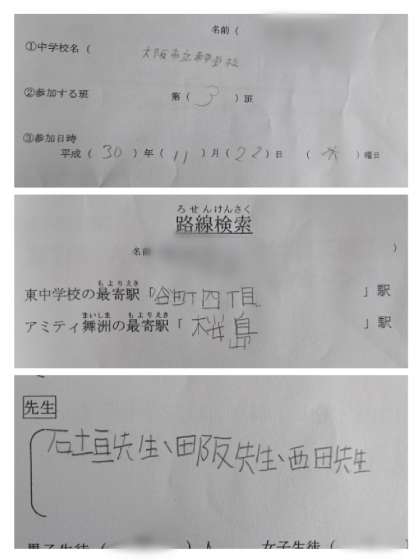 名前(
①中学校名( 大阪市立東中学校
②参加する班 第(3)班
③参加日時
平成(30)年(11)月(22)日 (木)曜日
ろせんけんさく
路線検索
名前 )
もよりえき
東中学校の最寄駅「谷町四丁目 」駅
まいしま もよりえき
アミティ舞洲の最寄駅「桜島 」駅
先生
石垣先生、田阪先生、西田先生
男子生徒( )人 女子生徒(